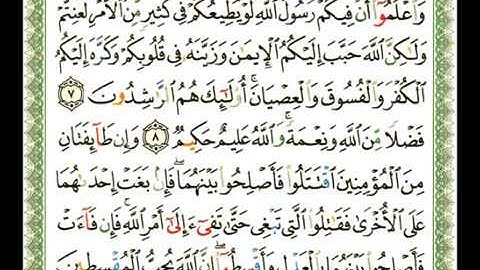 وَٱعْلَمُوٓا۟ أَنَّ فِيكُمْ رَسُولَ ٱللَّهِ لَوْ يُطِيعُكُمْ فِى كَثِيرٍ مِّنَ ٱلْأَمْرِ لَعَنِتُّمْ
وَلَٰكِنَّ ٱللَّهَ حَبَّبَ إِلَيْكُمُ ٱلْإِيمَٰنَ وَزَيَّنَهُۥ فِى قُلُوبِكُمْ وَكَرَّهَ إِلَيْكُمُ
ٱلْكُفْرَ وَٱلْفُسُوقَ وَٱلْعِصْيَانَ ۚ أُو۟لَٰٓئِكَ هُمُ ٱلرَّٰشِدُونَ ٧
فَضْلًا مِّنَ ٱللَّهِ وَنِعْمَةً ۚ وَٱللَّهُ عَلِيمٌ حَكِيمٌ ٨ وَإِن طَآئِفَتَانِ
مِنَ ٱلْمُؤْمِنِينَ ٱقْتَتَلُوا۟ فَأَصْلِحُوا۟ بَيْنَهُمَا ۖ فَإِنۢ بَغَتْ إِحْدَىٰهُمَا
عَلَى ٱلْأُخْرَىٰ فَقَٰتِلُوا۟ ٱلَّتِى تَبْغِى حَتَّىٰ تَفِىٓءَ إِلَىٰٓ أَمْرِ ٱللَّهِ ۚ فَإِن فَآءَتْ
فَأَصْلِحُوا۟ بَيْنَهُمَا بِٱلْعَدْلِ وَأَقْسِطُوٓا۟ ۖ إِنَّ ٱللَّهَ يُحِبُّ ٱلْمُقْسِطِينَ